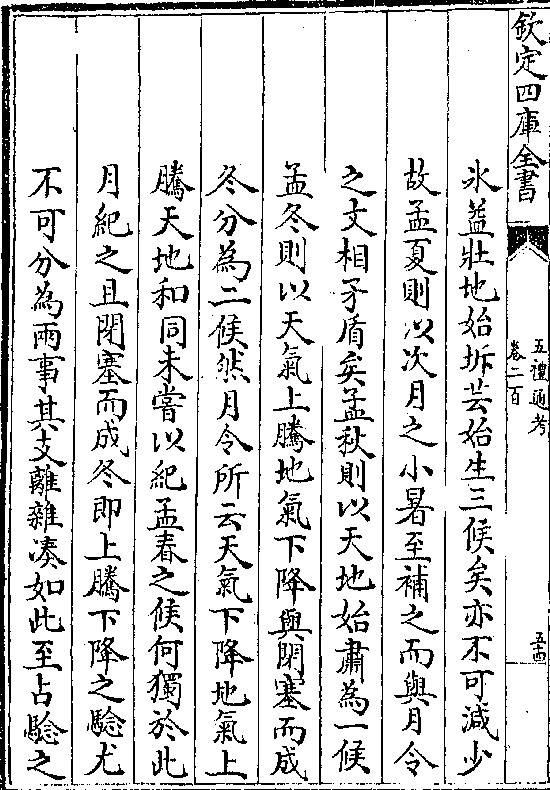 欽定四庫全書
五禮通考
卷二百
五十四
氷益壯地始坼芸始生三候矣亦不可減少
故孟夏則以次月之小暑至補之而與月令
之文相矛盾矣孟秋則以天地始肅為一候
孟冬則以天氣上騰地氣下降與閉塞而成
冬分為二候然月令所云天氣下降地氣上
騰天地和同未嘗以紀孟春之候何獨於此
月紀之且閉塞而成冬即上騰下降之驗尤
不可分為兩事其支離雜湊如此至占驗之